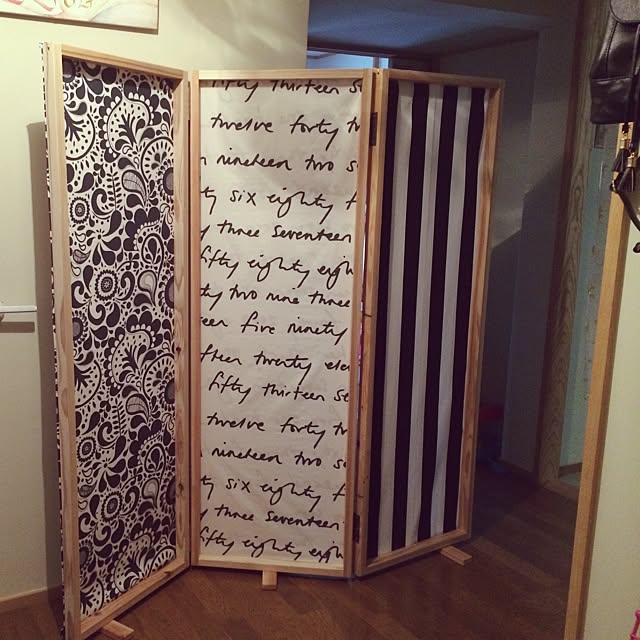 fifty thirteen s
twelve forty t
n nineteen two s
ty six eighty f
y three seventeen
fifty eighty eigh
ty two nine three
een five ninety
fteen twenty ele
fifty thirteen se
twelve forty t
nineteen two s
ty six eighty f
y three seventeen
fifty eighty eigh